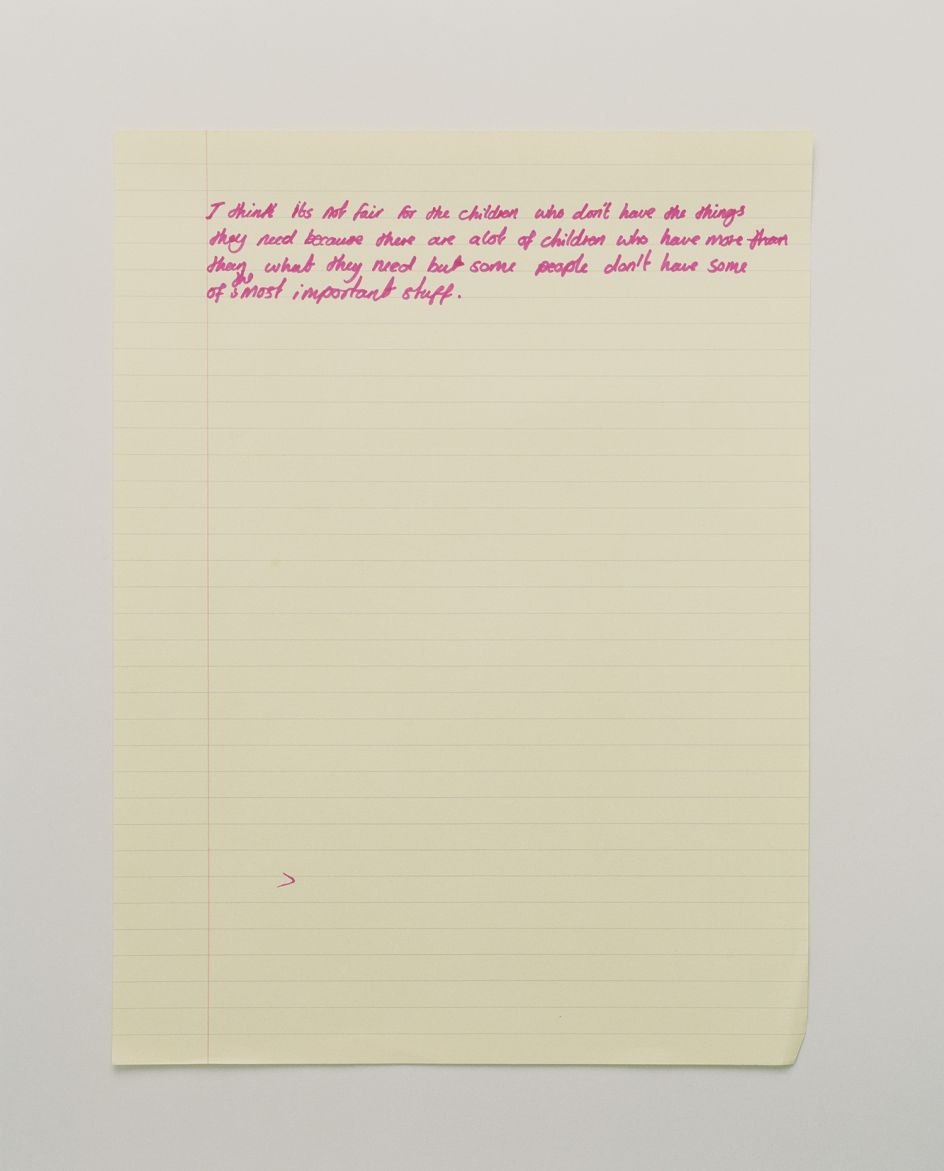 I think its not fair for the children who don't have the things
they need because there are alot of children who have more than
than, what they need but some people don't have some
of the most important stuff.
>